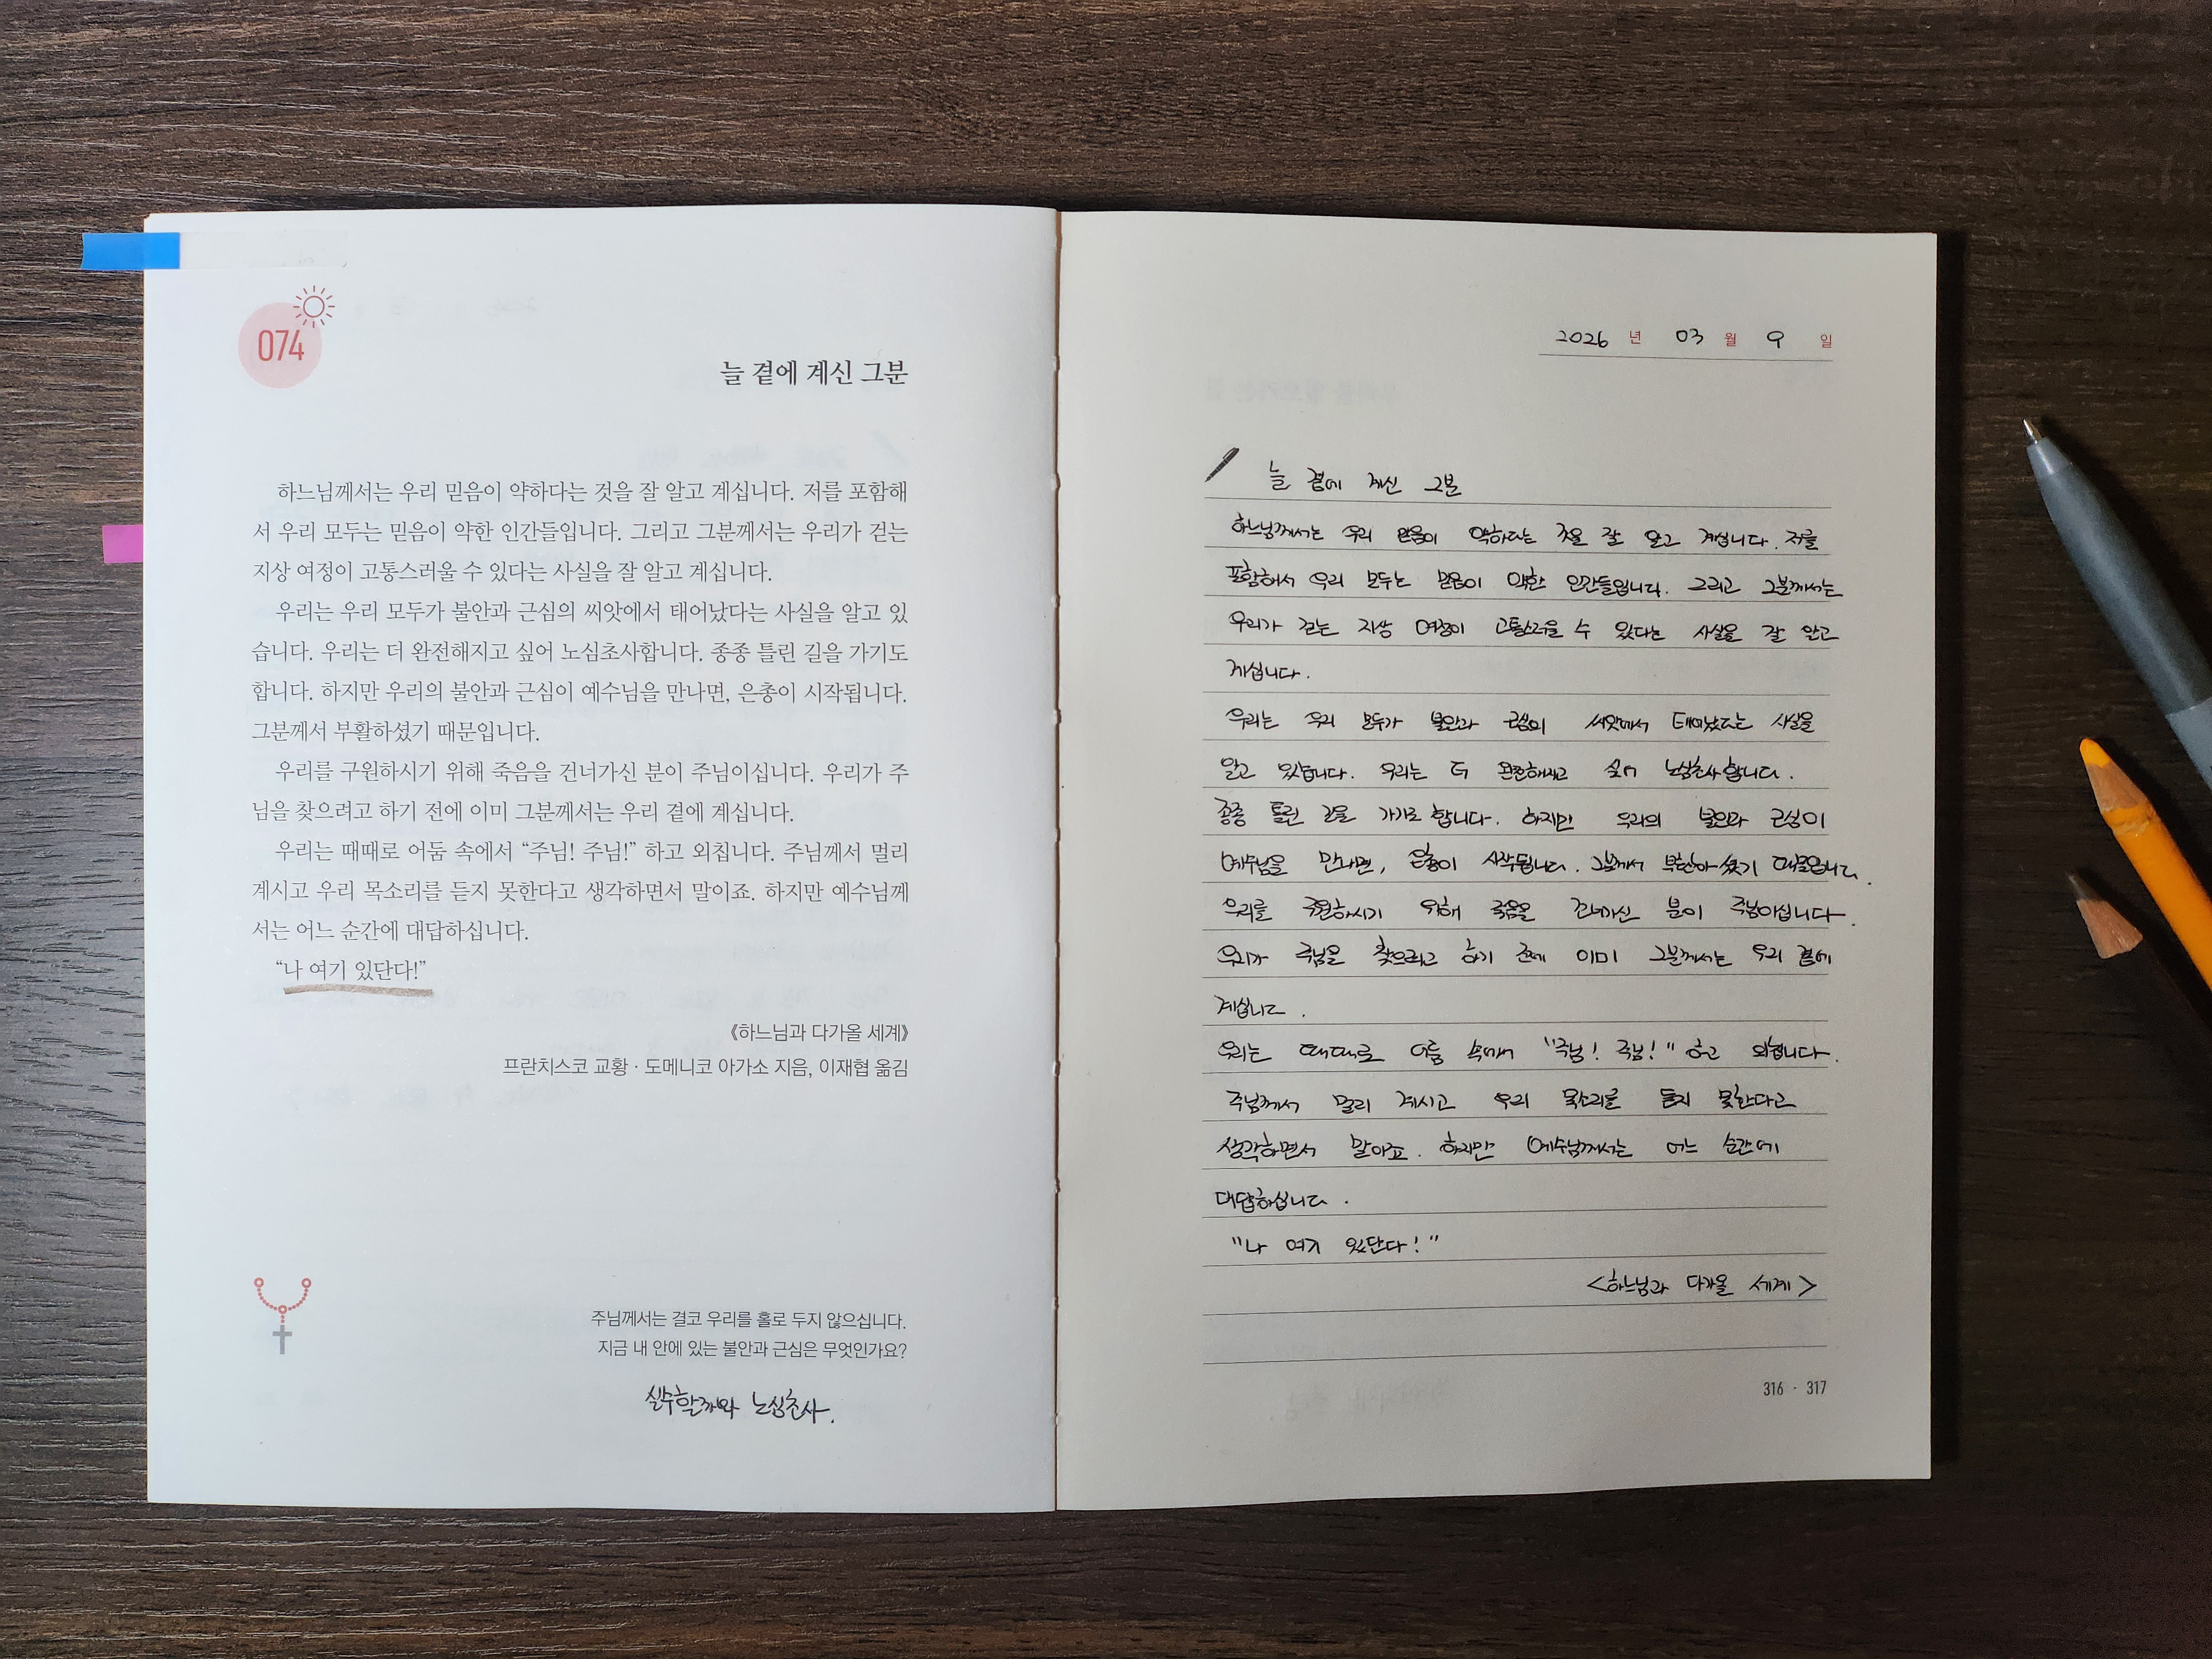 074
늘 곁에 계신 그분
하느님께서는 우리 믿음이 약하다는 것을 잘 알고 계십니다. 저를 포함해
서 우리 모두는 믿음이 약한 인간들입니다. 그리고 그분께서는 우리가 걷는
지상 여정이 고통스러울 수 있다는 사실을 잘 알고 계십니다.
우리는 우리 모두가 불안과 근심의 씨앗에서 태어났다는 사실을 알고 있
습니다. 우리는 더 완전해지고 싶어 노심초사합니다. 종종 틀린 길을 가기도
합니다. 하지만 우리의 불안과 근심이 예수님을 만나면, 은총이 시작됩니다.
그분께서 부활하셨기 때문입니다.
우리를 구원하시기 위해 죽음을 건너가신 분이 주님이십니다. 우리가 주
님을 찾으려고 하기 전에 이미 그분께서는 우리 곁에 계십니다.
우리는 때때로 어둠 속에서 “주님! 주님!” 하고 외칩니다. 주님께서 멀리
계시고 우리 목소리를 듣지 못한다고 생각하면서 말이죠. 하지만 예수님께
서는 어느 순간에 대답하십니다.
“나 여기 있단다!”
《하느님과 다가올 세계》
프란치스코 교황 · 도메니코 아가소 지음, 이재협 옮김
주님께서는 결코 우리를 홀로 두지 않으십니다.
지금 내 안에 있는 불안과 근심은 무엇인가요?
실수할까와 노심초사.
2026 년 03 월 9 일
늘 곁에 계신 그분
하느님께서는 우리 믿음이 약하다는 것을 잘 알고 계십니다. 저를
포함해서 우리 모두는 믿음이 약한 인간들입니다. 그리고 그분께서는
우리가 걷는 지상 여정이 고통스러울 수 있다는 사실을 잘 알고
계십니다.
우리는 우리 모두가 불안과 근심의 씨앗에서 태어났다는 사실을
알고 있습니다. 우리는 더 완전해지고 싶어 노심초사합니다.
종종 틀린 길을 가기도 합니다. 하지만 우리의 불안과 근심이
예수님을 만나면, 은총이 시작됩니다. 그분께서 부활하셨기 때문입니다.
우리를 구원하시기 위해 죽음을 건너가신 분이 주님이십니다.
우리가 주님을 찾으려고 하기 전에 이미 그분께서는 우리 곁에
계십니다.
우리는 때때로 어둠 속에서 "주님! 주님!" 하고 외칩니다.
주님께서 멀리 계시고 우리 목소리를 듣지 못한다고
생각하면서 말이죠. 하지만 예수님께서는 어느 순간에
대답하십니다.
"나 여기 있단다!"
<하느님과 다가올 세계>
316 · 317